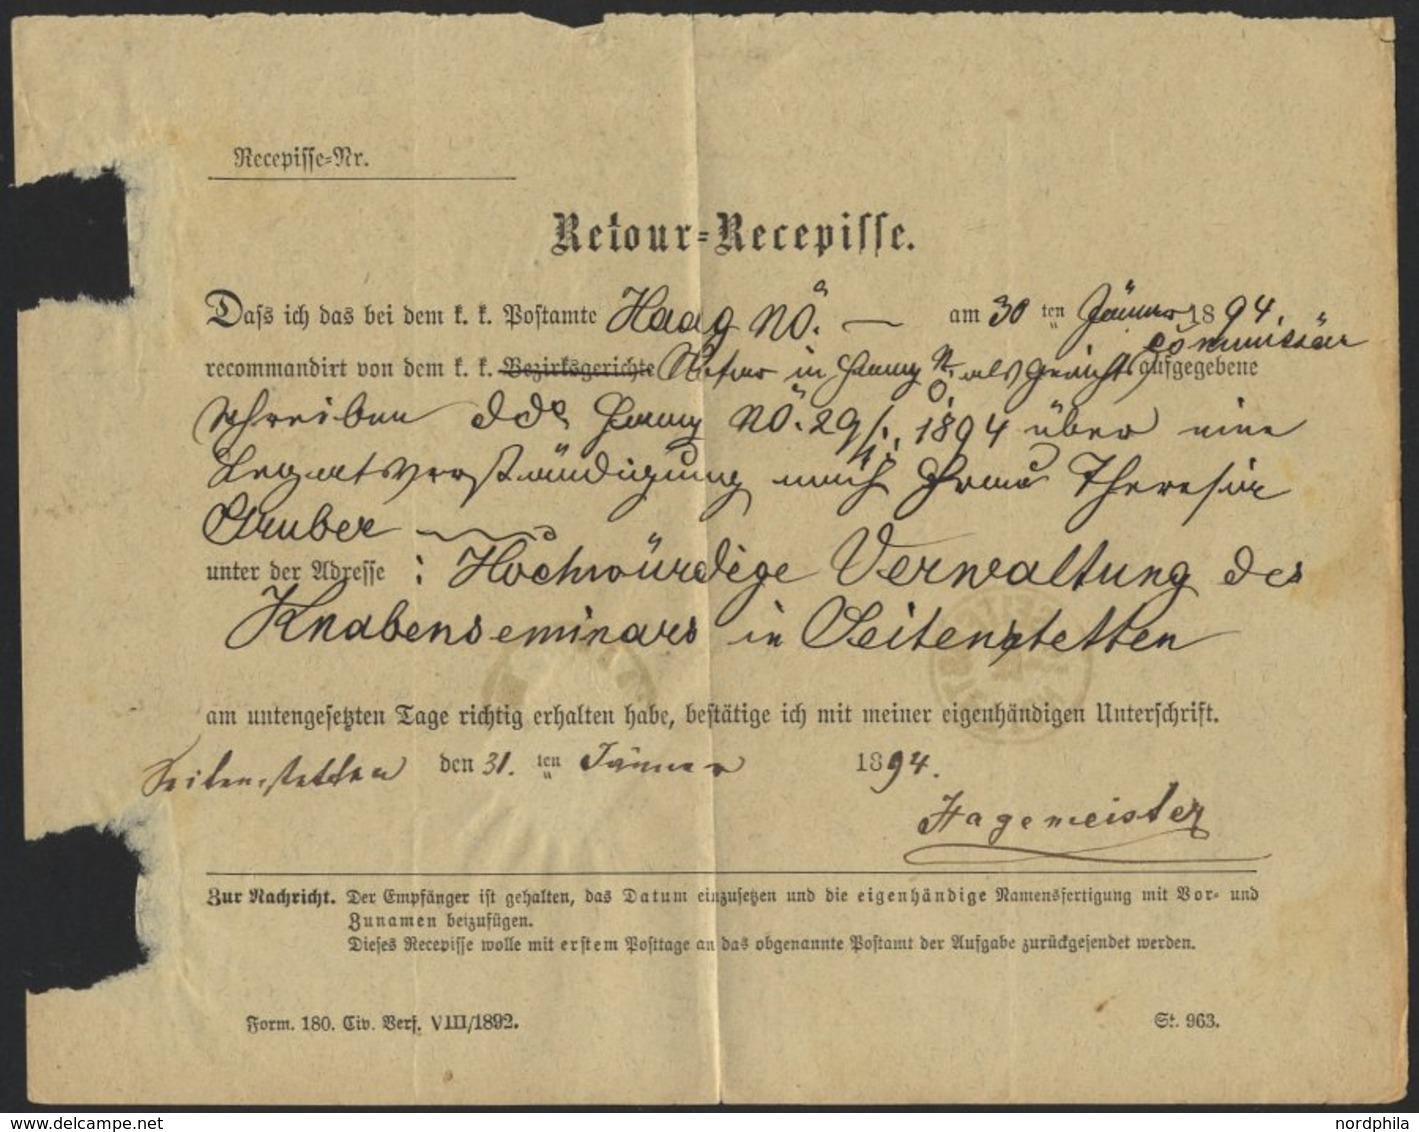 Recepisse-Nr.
Retour-Recepisse.
Dass ich das bei dem k. k. Postamte Haag NÖ. — am 30 ten Jänner 1894.
recommandirt von dem k. k. Bezirksgerichte Notar in Haag NÖ. als Gerichtscommissär aufgegebene
Schreiben ddo Haag NÖ. 29/1. 1894 über eine
Legatsverständigung nach Frau Theresia
Gruber
unter der Adresse : Hochwürdige Verwaltung des
Knabenseminars in Seitenstetten
am untengesetzten Tage richtig erhalten habe, bestätige ich mit meiner eigenhändigen Unterschrift.
Seitenstetten den 31. ten Jänner 1894.
Hagemeister
Zur Nachricht. Der Empfänger ist gehalten, das Datum einzusetzen und die eigenhändige Namensfertigung mit Vor- und
Zunamen beizufügen.
Dieses Recepisse wolle mit erstem Posttage an das obgenannte Postamt der Aufgabe zurückgesendet werden.
Form. 180. Civ. Verf. VIII/1892.
St. 963.
www.delcampe.net
nordphila